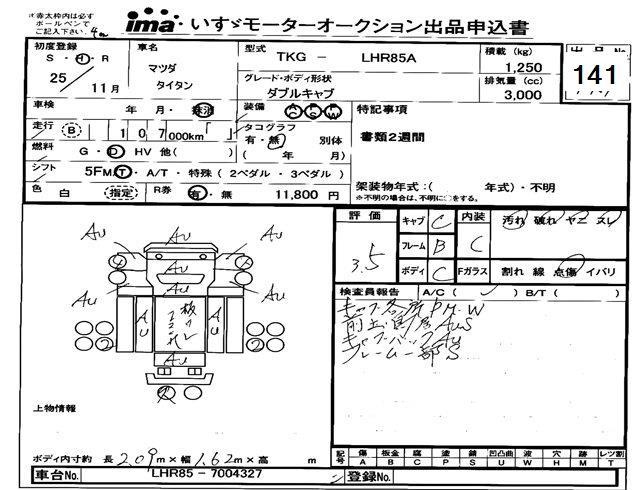 ※赤太枠内は必ず
ボールペンで
ご記入下さい。
ima いすゞモーターオークション出品申込書
初度登録
S・H・R
25/11月
車名
マツダ
タイタン
型式 TKG － LHR85A
グレード・ボディ形状
ダブルキャブ
積載 (kg)
1,250
排気量 (cc)
3,000
出品No.
141
車検 年 月・抹消
走行 B 107 000km
燃料 G・D HV 他( )
シフト 5F M/T・A/T・特殊 ( 2ペダル・3ペダル )
色 白 指定
R券 有・無 11,800 円
装備 AC PS PW
タコグラフ
有・無 別体
( 年 月)
特記事項
書類2週間
架装物年式：( 年式)・不明
※不明の場合は、不明に○をする。
評価
3.5
キャブ C
フレーム B
ボディ C
内装 C
Fガラス
汚れ 破れ ヤニ スレ
割れ 線 点傷 イバリ
検査員報告 A/C ( ✓ ) B/T ( )
キャブ各所P.M.W
Au
Au
Au
Au
Au
Au
Au
Au
Au
Au
上物情報
ボディ内寸約 長 2.09 m×幅 1.62 m×高 m
記号 傷A 板金B 腐C 塗P 錆S 凹凸曲U 波W 穴H 跡M レツ割T
車台No. LHR85 － 7004327
登録No.